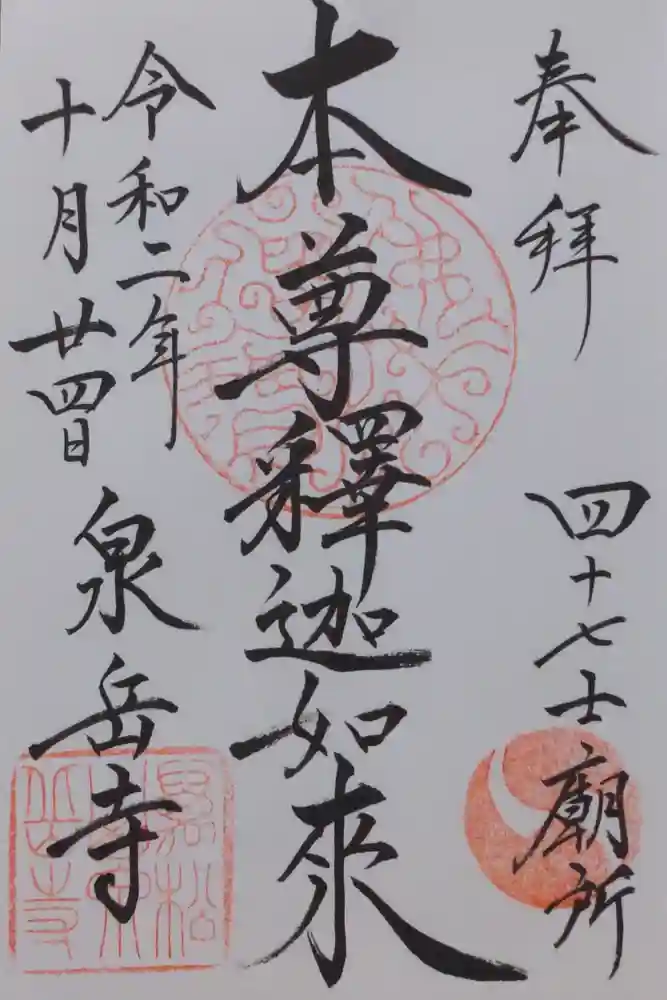 奉拝
四十七士廟所
本尊釋迦如來
令和二年
十月廿四日
泉岳寺